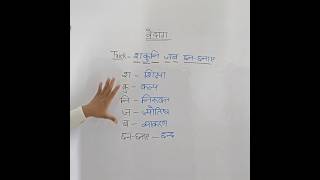 वेदांग
Trick - शकुनि जब छन-छनाए
श - शिक्षा
कु - कल्प
नि - निरुक्त
ज - ज्योतिष
ब - व्याकरण
छन-छनाए - छन्द